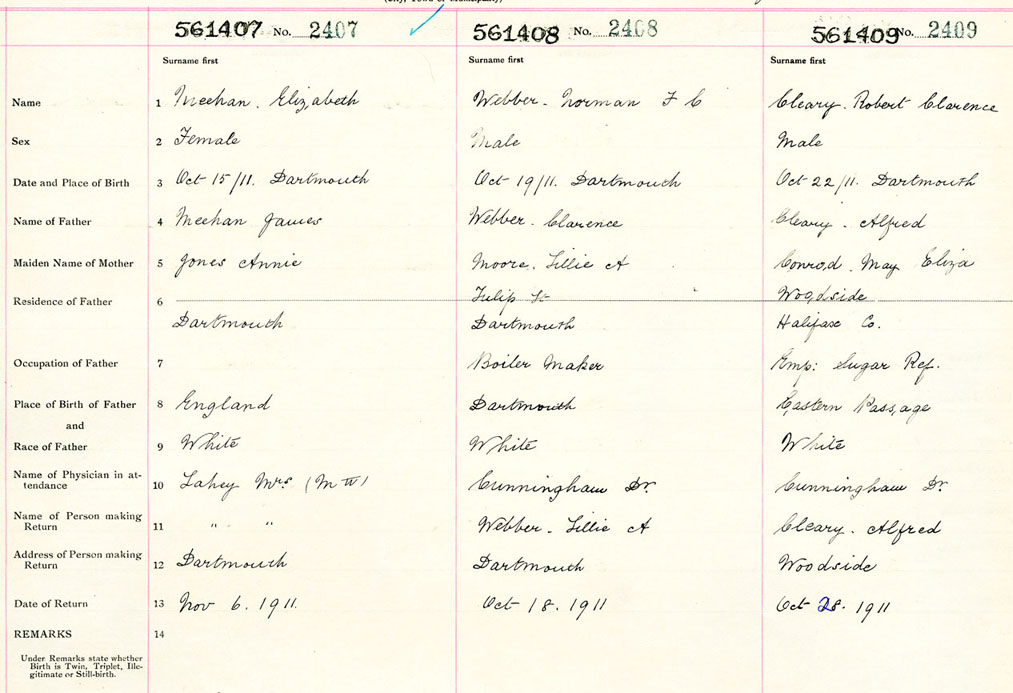 (City, Town or Municipality)
561407 No. 2407 561408 No. 2408 561409 No. 2409
Surname first Surname first Surname first
Name 1 Meehan. Elizabeth Webber. Norman F C Cleary. Robert Clarence
Sex 2 Female Male Male
Date and Place of Birth 3 Oct 15/11. Dartmouth Oct 19/11. Dartmouth Oct 22/11. Dartmouth
Name of Father 4 Meehan James Webber. Clarence Cleary. Alfred
Maiden Name of Mother 5 Jones Annie Moore. Lillie A Conrod. May Eliza
Residence of Father 6 Tulip St Woodside
Dartmouth Dartmouth Halifax Co.
Occupation of Father 7 Boiler Maker Emp: Sugar Ref.
Place of Birth of Father 8 England Dartmouth Eastern Passage
and
Race of Father 9 White White White
Name of Physician in at-
tendance 10 Lahey Mrs (M W) Cunningham Dr. Cunningham Dr.
Name of Person making
Return 11 " " Webber. Lillie A Cleary. Alfred
Address of Person making
Return 12 Dartmouth Dartmouth Woodside
Date of Return 13 Nov 6. 1911. Oct 18. 1911 Oct 28. 1911
REMARKS 14
Under Remarks state whether
Birth is Twin, Triplet, Ille-
gitimate or Still-birth.